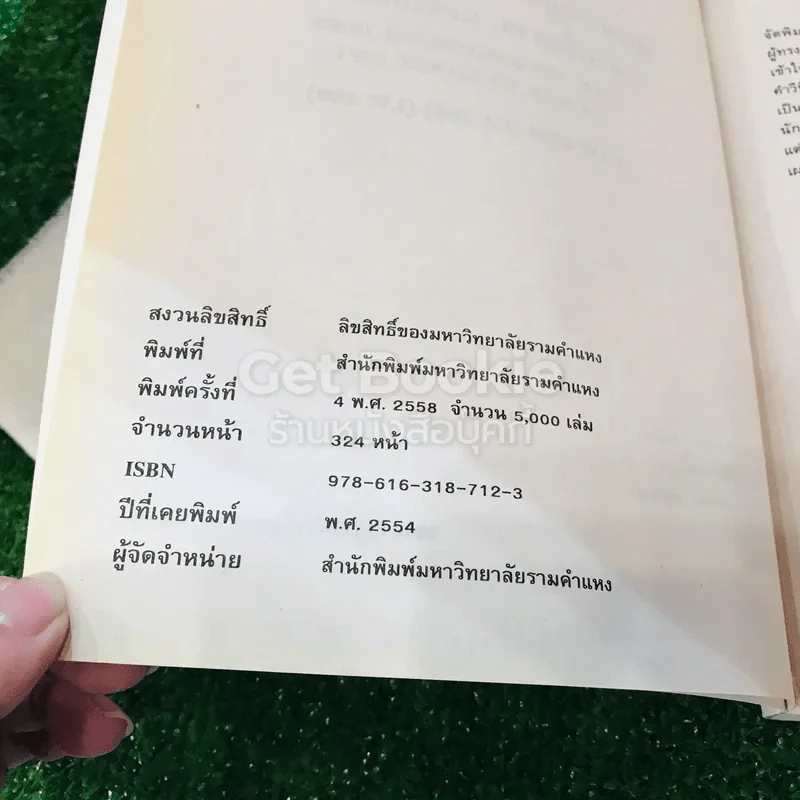 สงวนลิขสิทธิ์ ลิขสิทธิ์ของมหาวิทยาลัยรามคำแหง
พิมพ์ที่ สำนักพิมพ์มหาวิทยาลัยรามคำแหง
พิมพ์ครั้งที่ 4 พ.ศ. 2558 จำนวน 5,000 เล่ม
จำนวนหน้า 324 หน้า
ISBN 978-616-318-712-3
ปีที่เคยพิมพ์ พ.ศ. 2554
ผู้จัดจำหน่าย สำนักพิมพ์มหาวิทยาลัยรามคำแหง
Get Bookie
ร้านหนังสือบุคกี้
จัดพิม
ผู้ทรง
เข้าใ
คำวิ
เป็น
นัก
แต่
เผ